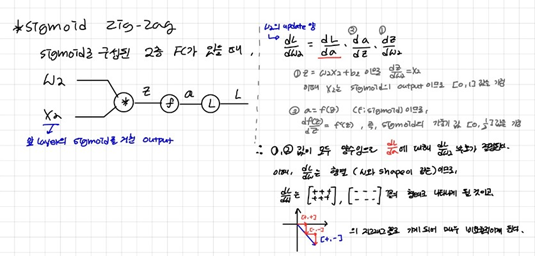 *Sigmoid zig-zag
Sigmoid로 구성된 2층 FC가 있을 때,
W2
X2
*
z
f
a
L
L
앞 layer의 sigmoid를 거친 output
W2의 update 양
dL/dW2 = dL/da · da/dz · dz/dW2
② ①
① z = W2X2+b2 이므로 dz/dW2 = X2
이때 X2는 sigmoid의 output 이므로 [0,1] 값을 가짐
② a = f(z) (f: sigmoid) 이므로,
df(z)/dz = f'(z), 즉, sigmoid의 기울기 값 [0,1/4] 값을 가짐
∴ ①,② 값이 모두 양수임으로 dL/da 에 대해 dL/dW2 부호가 결정된다.
이때, dL/dW는 행렬 (W와 shape이 같은) 이므로,
dL/dW는 [+++ +++], [--- ---] 같은 형태로 나타나게 될 것이고
[+,+]
[-,-]
[+,-]
의 지그재그 꼴로 가게 되어 매우 비효율적이게 된다.